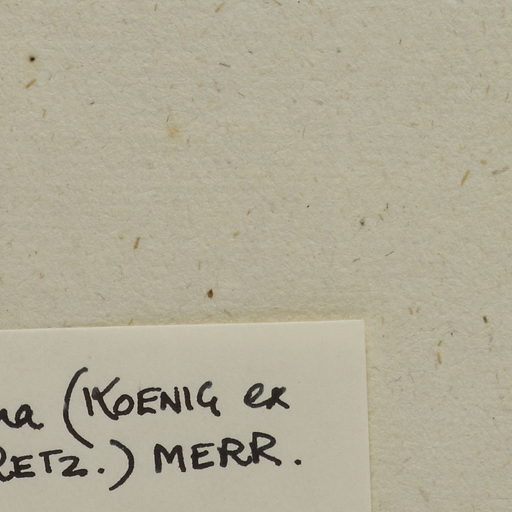 na (KOENIG ex
RETZ.) MERR.